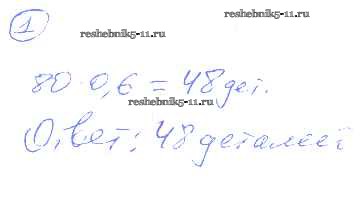 1
reshebnik5-11.ru
reshebnik5-11.ru
80·0,6 = 48 дет.
reshebnik5-11.ru
Ответ: 48 деталей